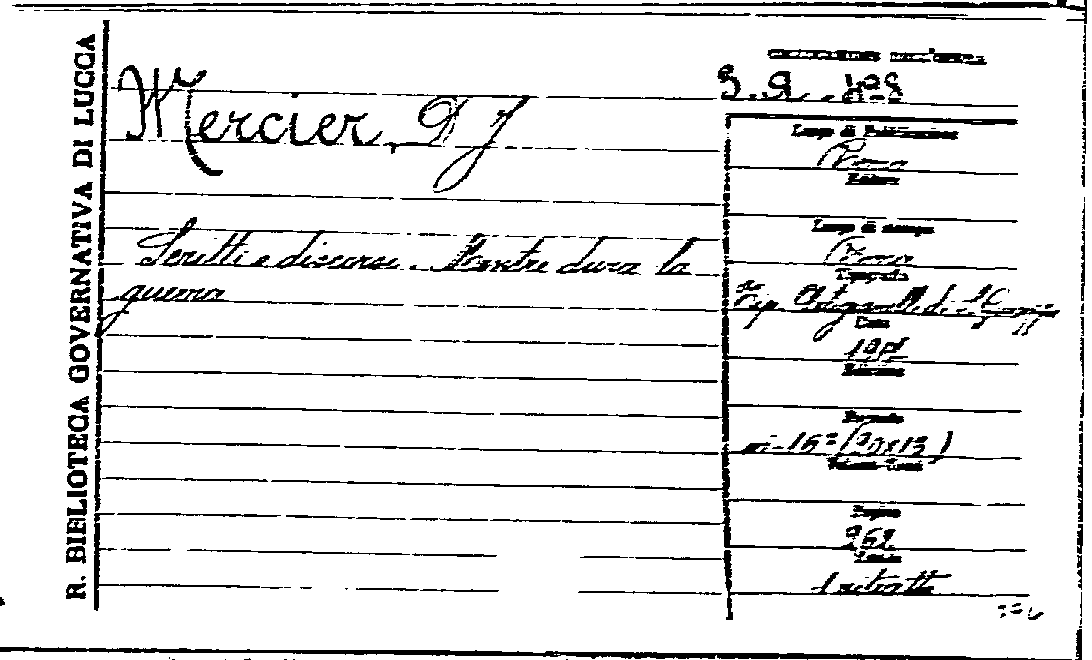 R. BIBLIOTECA GOVERNATIVA DI LUCCA
Mercier, D J
Scritti e discorsi. Mentre dura la
guerra
Luogo di Pubblicazione
Roma
Editore
Luogo di stampa
Roma
Tipografia
Tip. Artigianelli di S.
Data
Edizione
Formato
in-16° (20x13)
Pagine
262
1 ritratto